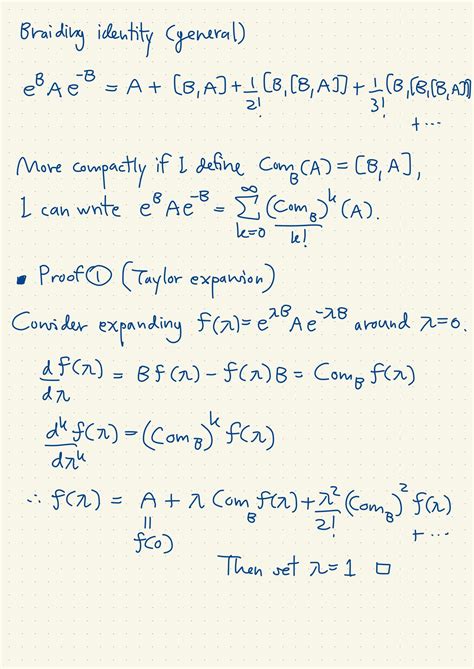 Braiding identity (general)
e^B A e^{-B} = A + [B, A] + \frac{1}{2!} [B, [B, A]] + \frac{1}{3!} [B, [B, [B, A]]]
+ ...
More compactly if I define Com_B(A) = [B, A],
I can write e^B A e^{-B} = \sum_{k=0}^{\infty} \frac{(Com_B)^k}{k!} (A).
▪ Proof ① (Taylor expansion)
Consider expanding f(λ) = e^{λB} A e^{-λB} around λ=0.
\frac{d f(λ)}{dλ} = B f(λ) - f(λ) B = Com_B f(λ)
\frac{d^k f(λ)}{dλ^k} = (Com_B)^k f(λ)
∴ f(λ) = A + λ Com_B f(λ) + \frac{λ^2}{2!} (Com_B)^2 f(λ)
+ ...
||
f(0)
Then set λ = 1 □